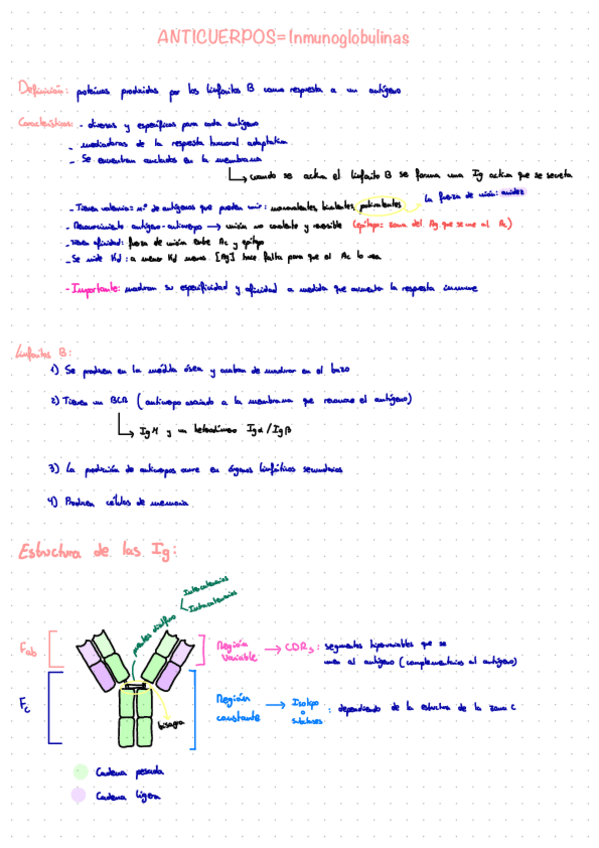 ANTICUERPOS=Inmunoglobulinas
Definición: proteínas producidas por los linfocitos B como respuesta a un antígeno
Características: - diversas y específicas para cada antígeno
- mediadoras de la respuesta humoral adaptativa
- Se encuentran anclados en la membrana
cuando se activa el linfocito B se forma una Ig activa que se secreta
- Tienen valencia: nº de antígenos que pueden unir: monovalentes, bivalentes, polivalentes
la fuerza de unión: avidez
- Reconocimiento antígeno-anticuerpo → unión no covalente y reversible (epítopo: zona del Ag que se une al Ac)
afinidad: fuerza de unión entre Ac y epítopo
- Se mide Kd: a menor Kd menos [Ag] hace falta para que el Ac lo una
- Importante: maduran su especificidad y afinidad a medida que aumenta la respuesta inmune
Linfocitos B:
1) Se producen en la médula ósea y acaban de madurar en el bazo
2) Tienen un BCR (anticuerpo asociado a la membrana que reconoce el antígeno)
IgM y un heterodímero Igα/Igβ
3) La producción de anticuerpos ocurre en órganos linfáticos secundarios
4) Producen células de memoria
Estructura de las Ig:
Intercatenarios
Intracatenarios
puentes disulfuro
Fab
Región variable → CDRs: segmentos hipervariables que se
unen al antígeno (complementarios al antígeno)
Fc
Región constante → Isotipo o subclases: dependiendo de la estructura de la zona C
bisagra
Cadena pesada
Cadena ligera